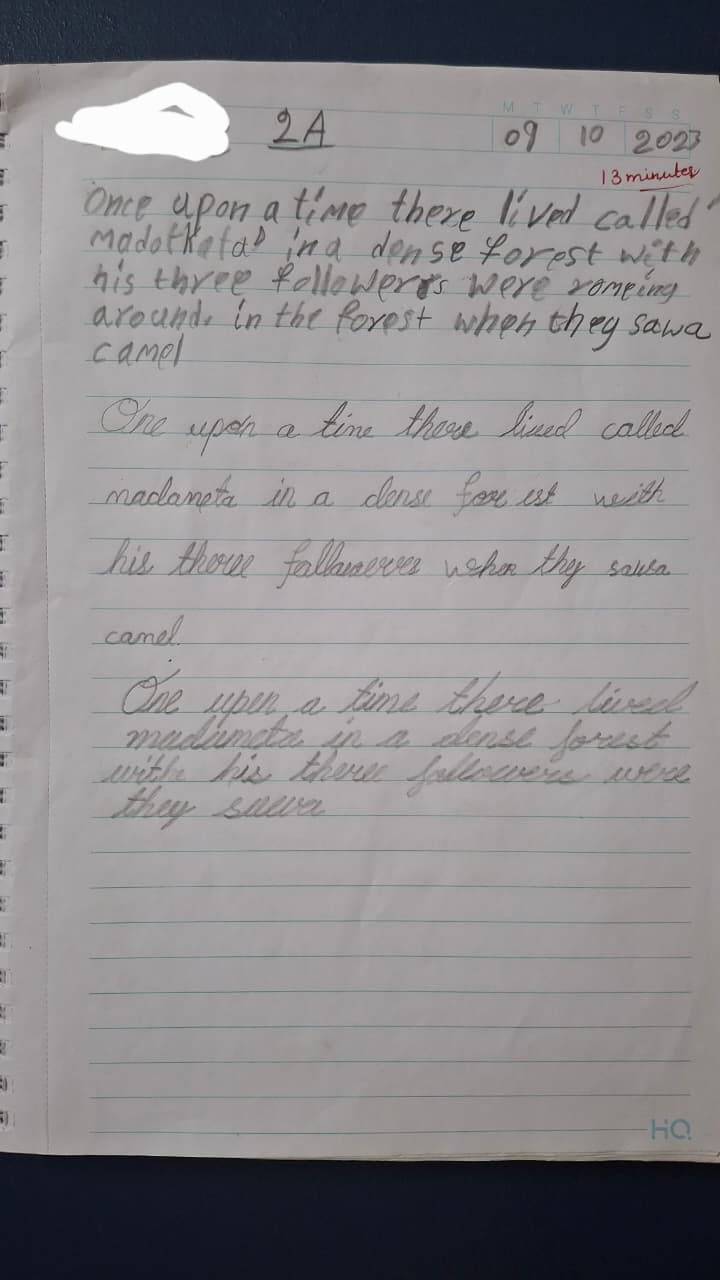 2A
M T W T F S S
09 10 2023
13 minutes
Once upon a time there lived called
Madotkata in a dense forest with
his three followers were romeing
around. in the forest when they sawa
camel
One upon a tine there lived called
madameta in a dense fore est with
his theree fallowerers when thy sawa
camel.
One upen a time there lived
madameta in a dense forest
with his theree fallowers were
they sawa
HQ